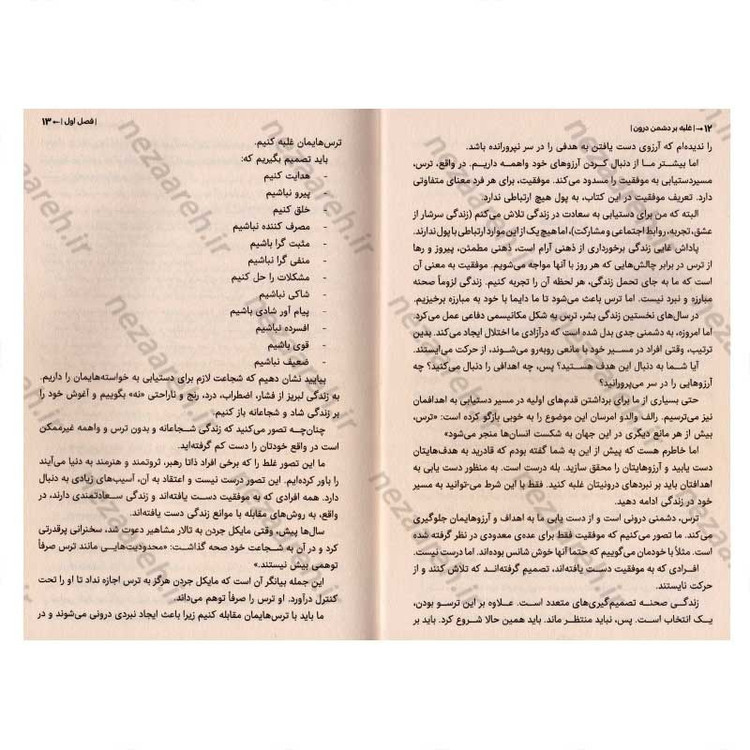 ۱۲ → | غلبه بر دشمن درون |
را ندیده‌ام که آرزوی دست یافتن به هدفی را در سر نپرورانده باشد.
اما بیشتر ما از دنبال کردن آرزوهای خود واهمه داریم. در واقع، ترس،
مسیردستیابی به موفقیت را مسدود می‌کند. موفقیت، برای هر فرد معنای متفاوتی
دارد. تعریف موفقیت در این کتاب، به پول هیچ ارتباطی ندارد.
البته که من برای دستیابی به سعادت در زندگی تلاش می‌کنم (زندگی سرشار از
عشق، تجربه، روابط اجتماعی و مشارکت)، اما هیچ یک از این موارد ارتباطی با پول ندارند.
پاداش غایی زندگی برخورداری از ذهنی آرام است، ذهنی مطمئن، پیروز و رها
از ترس در برابر چالش‌هایی که هر روز با آنها مواجه می‌شویم. موفقیت به معنی آن
است که ما به جای تحمل زندگی، هر لحظه آن را تجربه کنیم. زندگی لزوماً صحنه
مبارزه و نبرد نیست. اما ترس باعث می‌شود تا ما دایما با خود به مبارزه برخیزیم.
در سال‌های نخستین زندگی بشر، ترس به شکل مکانیسمی دفاعی عمل می‌کرد.
اما امروزه، به دشمنی جدی بدل شده است که درآزادی ما اختلال ایجاد می‌کند. بدین
ترتیب، وقتی افراد در مسیر خود با مانعی روبه‌رو می‌شوند، از حرکت می‌ایستند.
آیا شما به دنبال این هدف هستید؟ پس، چه اهدافی را دنبال می‌کنید؟ چه
آرزوهایی را در سر می‌پرورانید؟
حتی بسیاری از ما برای برداشتن قدم‌های اولیه در مسیر دستیابی به اهدافمان
نیز می‌ترسیم. رالف والدو امرسان این موضوع را به خوبی بازگو کرده است: «ترس،
بیش از هر مانع دیگری در این جهان به شکست انسان‌ها منجر می‌شود»
اما خاطرم هست که پیش از این به شما گفته بودم که قادرید به هدف‌هایتان
دست یابید و آرزوهایتان را محقق سازید. بله درست است. به منظور دست یابی به
اهدافتان باید بر نبردهای درونیتان غلبه کنید. فقط با این شرط می‌توانید به مسیر
خود در زندگی ادامه دهید.
ترس، دشمنی درونی است و از دست یابی ما به اهداف و آرزوهایمان جلوگیری
می‌کند. ما تصور می‌کنیم که موفقیت فقط برای عده‌ی معدودی در نظر گرفته شده
است. مثلاً با خودمان می‌گوییم که حتما آنها خوش شانس بوده‌اند. اما درست نیست.
افرادی که به موفقیت دست یافته‌اند، تصمیم گرفته‌اند که تلاش کنند و از
حرکت نایستند.
زندگی صحنه تصمیم‌گیری‌های متعدد است. علاوه بر این ترسو بودن،
یک انتخاب است. پس، نباید منتظر ماند. باید همین حالا شروع کرد. باید بر
| فصل اول | ← ۱۳
ترس‌هایمان غلبه کنیم.
باید تصمیم بگیریم که:
- هدایت کنیم
- پیرو نباشیم
- خلق کنیم
- مصرف کننده نباشیم
- مثبت گرا باشیم
- منفی گرا نباشیم
- مشکلات را حل کنیم
- شاکی نباشیم
- پیام آور شادی باشیم
- افسرده نباشیم
- قوی باشیم
- ضعیف نباشیم
بیایید نشان دهیم که شجاعت لازم برای دستیابی به خواسته‌هایمان را داریم.
به زندگی لبریز از فشار، اضطراب، درد، رنج و ناراحتی «نه» بگوییم و آغوش خود را
بر زندگی شاد و شجاعانه باز کنیم.
چنان‌چه تصور می‌کنید که زندگی شجاعانه و بدون ترس و واهمه غیرممکن
است در واقع خودتان را دست کم گرفته‌اید.
ما این تصور غلط را که برخی افراد ذاتا رهبر، ثروتمند و هنرمند به دنیا می‌آیند
را باور کرده‌ایم. این تصور درست نیست و اعتقاد به آن، آسیب‌های زیادی به دنبال
دارد. همه افرادی که به موفقیت دست یافته‌اند و زندگی سعادتمندی دارند، در
واقع، به روش‌های مقابله با موانع زندگی دست یافته‌اند.
سال‌ها پیش، وقتی مایکل جردن به تالار مشاهیر دعوت شد، سخنرانی پرقدرتی
کرد و در آن به شجاعت خود صحه گذاشت: «محدودیت‌هایی مانند ترس صرفاً
توهمی بیش نیستند.»
این جمله بیانگر آن است که مایکل جردن هرگز به ترس اجازه نداد تا او را تحت
کنترل درآورد. او ترس را صرفاً توهم می‌داند.
ما باید با ترس‌هایمان مقابله کنیم زیرا باعث ایجاد نبردی درونی می‌شوند و در
nezaareh.ir